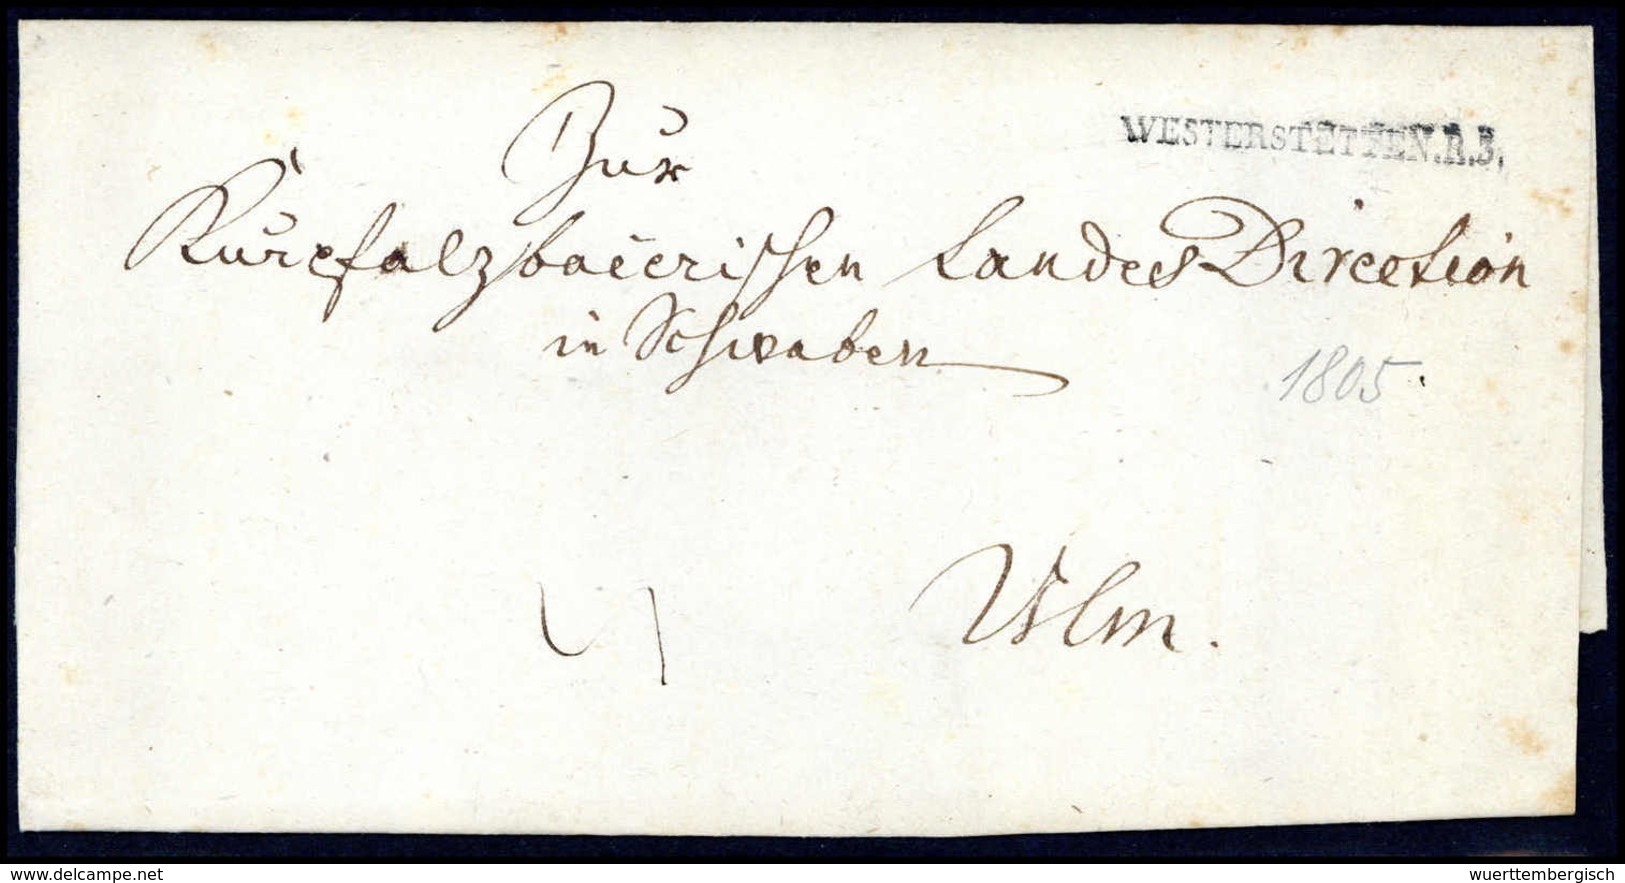 WESTERSTETTEN.R.3.
Zur
Kurpfalzbaierischen Landes Direction
in Schwaben
1805
Ulm.
delcampe.net
wuerttembergisch